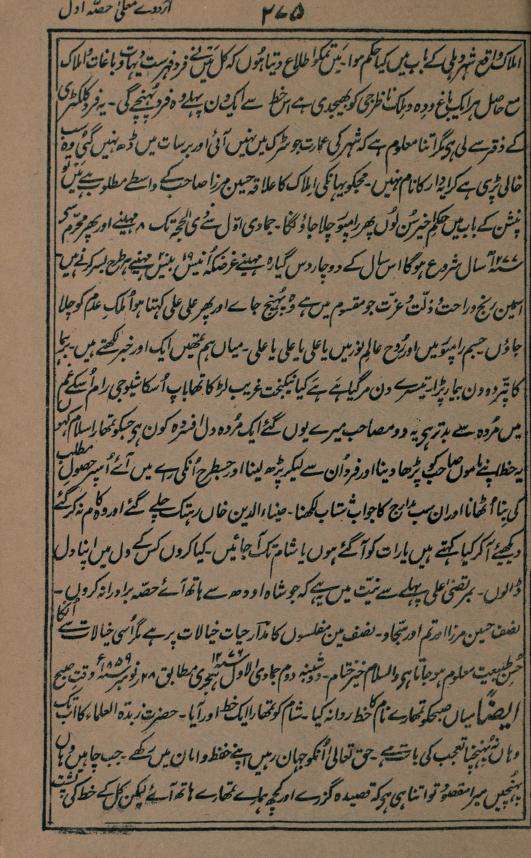 اردوے معلیٰ حصۂ اول
۲۷۵
املاک واقع شہر دہلی کے باب میں کیا حکم ہوا۔ میں تمکو اطلاع دیتا ہوں کہ کل میں نے فرد فہرست دیہات و باغات و املاک
مع حاصل ہر ایک باغ و دہ و ملک ناظر جی کو بھیجدی ہے اس خط سے ایک دن پہلے وہ فرد پہنچے گی۔ یہ فرد کلکٹری
کے دفتر سے لی ہی مگر اتنا معلوم ہے کہ شہر کی عمارت جو سڑک میں نہیں آئی اور برسات میں ڈھ نہیں گئی وہ سب
خالی پڑی ہے کرایہ دار کا نام نہیں۔ مجکو یہانکی املاک کا علاقہ حسین مرزا صاحب کے واسطے مطلوب ہے میں تو
پنشن کے باب میں حکم اخیر سن لوں پھر رامپور چلا جاؤنگا۔ جمادی الاول سے ذی الحجہ تک ۸ مہینے اور پھر محرم سے
۱۲۷۷ سال شروع ہوگا اس سال کے دو چار دس گیارہ مہینے غرضکہ اُنیس ۱۹ بیس ۲۰ مہینے ہر طرح بسر کرنے ہیں
اسمین رنج و راحت و ذلت و عزت جو مقسوم میں ہے وہ پہنچ جاے اور پھر علی علی کہتا ہوا ملک عدم کو چلا
جاؤں جسم رامپور میں اور روح عالم نور میں یا علی یا علی یا علی۔ میاں ہم تمھیں ایک اور خبر لکھتے ہیں۔ برہما
کا پتر دو دن بیمار پڑا تیسرے دن مر گیا ہے ہے کیا نیکبخت غریب لڑکا تھا باپ اُسکا شیوجی رام اُسکے غم
میں مردہ سے بدتر ہی یہ دو مصاحب میرے یوں گئے ایک مردہ دل افسردہ کون ہی جسکو تمھارا سلام کہوں
یہ خط اپنے ماموں صاحب کو پڑھا دینا اور فرد اُن سے لیکر پڑھ لینا اور جسطرح اُنکی راے میں آئے اُسپر حصول مطلب
کی بنا اُٹھانا اور ان سب مدارج کا جواب شتاب لکھنا۔ ضیاء الدین خاں رہتک چلے گئے اور وہ کام نہ کر گئے
دیکھئے آکر کیا کہتے ہیں یا رات کو آگئے ہوں یا شام تک آجائیں۔ کیا کروں کس کے دل میں اپنا دل
ڈالوں۔ بمرتضیٰ علی پہلے سے نیت میں یہ ہے کہ جو شاہ اودھ سے ہاتھ آئے حصہ برادرانہ کروں۔
نصف حسین مرزا اور تم اور سجاد۔ نصف میں مفلسوں کا مدار حیات خیالات پر ہے مگر اُسی خیالات سے اُنکا
حسن طبیعت معلوم ہو جاتا ہی والسلام خیر ختام۔ دوشنبہ دوم جمادی الاول ۱۲۷۶ ہجری مطابق ۲۸ نومبر ۱۸۵۹ع وقت صبح
ایضاً میاں صبح کو تمھارے نام کا خط روانہ کیا۔ شام کو تمھارا ایک خط اور آیا۔ حضرت زبدۃ العلما کا ابتک
وہاں نہ پہنچنا تعجب کی بات ہے۔ حق تعالیٰ اُنکو جہان رہیں اپنے حفظ و امان میں رکھے۔ جب چاہیں وہاں
پہنچیں میرا مقصود تو اتنا ہی ہی کہ قصیدہ گزرے اور کچھ ہمارے تمھارے ہاتھ آئے لیکن کل کے خط کی پشت